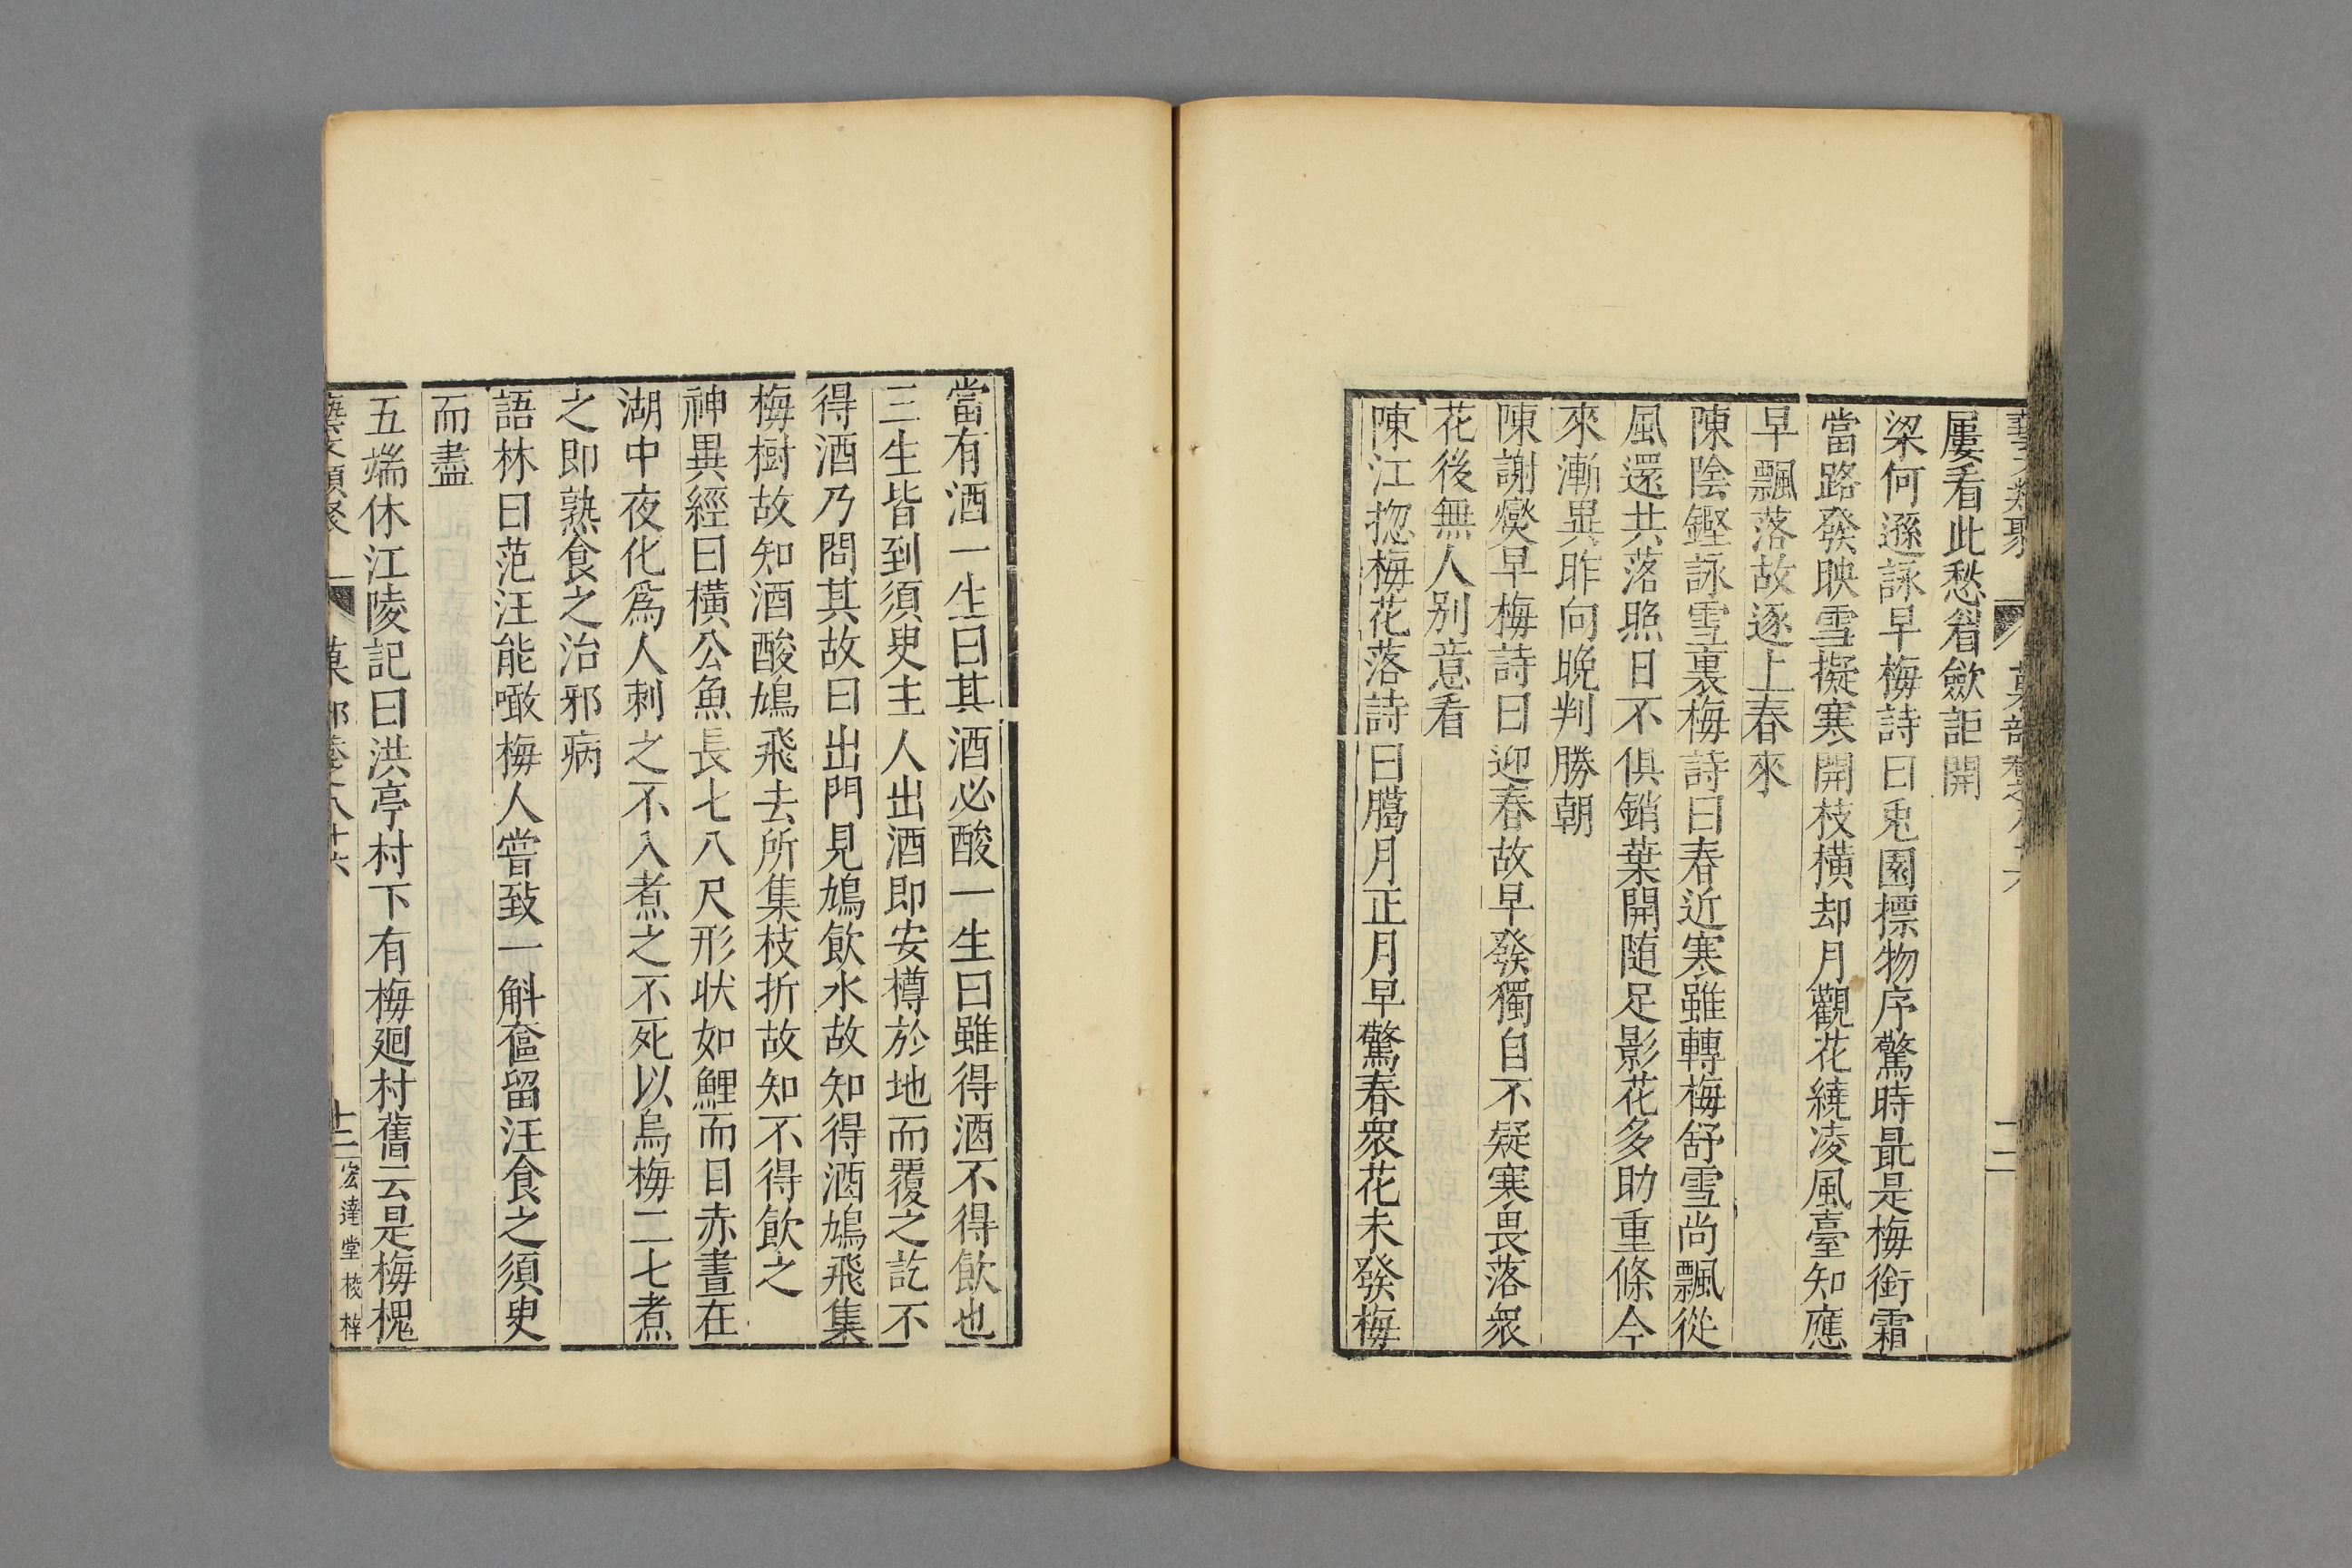 藝文類聚 菓部卷之八十六 十二
屢看此愁眉斂詎開
梁何遜詠早梅詩曰兎園摽物序驚時最是梅銜霜
當路發映雪擬寒開枝橫却月觀花繞凌風臺知應
早飄落故逐上春來
陳陰鏗詠雪裏梅詩曰春近寒雖轉梅舒雪尚飄從
風還共落照日不俱銷葉開隨足影花多助重條今
來漸異昨向晚判勝朝
陳謝爕早梅詩曰迎春故早發獨自不疑寒畏落衆
花後無人别意看
陳江揔梅花落詩曰臈月正月早驚春衆花未發梅
當有酒一生曰其酒必酸一生曰雖得酒不得飲也
三生皆到須臾主人出酒即安樽於地而覆之訖不
得酒乃問其故曰出門見鳩飲水故知得酒鳩飛集
梅樹故知酒酸鳩飛去所集枝折故知不得飲之
神異經曰橫公魚長七八尺形状如鯉而目赤晝在
湖中夜化爲人刺之不入煮之不死以烏梅二七煮
之即熟食之治邪病
語林曰范汪能噉梅人嘗致一斛奩留汪食之須臾
而盡
五端休江陵記曰洪亭村下有梅廻村舊云是梅槐
藝文類聚 菓部卷之八十六 十二 宏達堂校梓